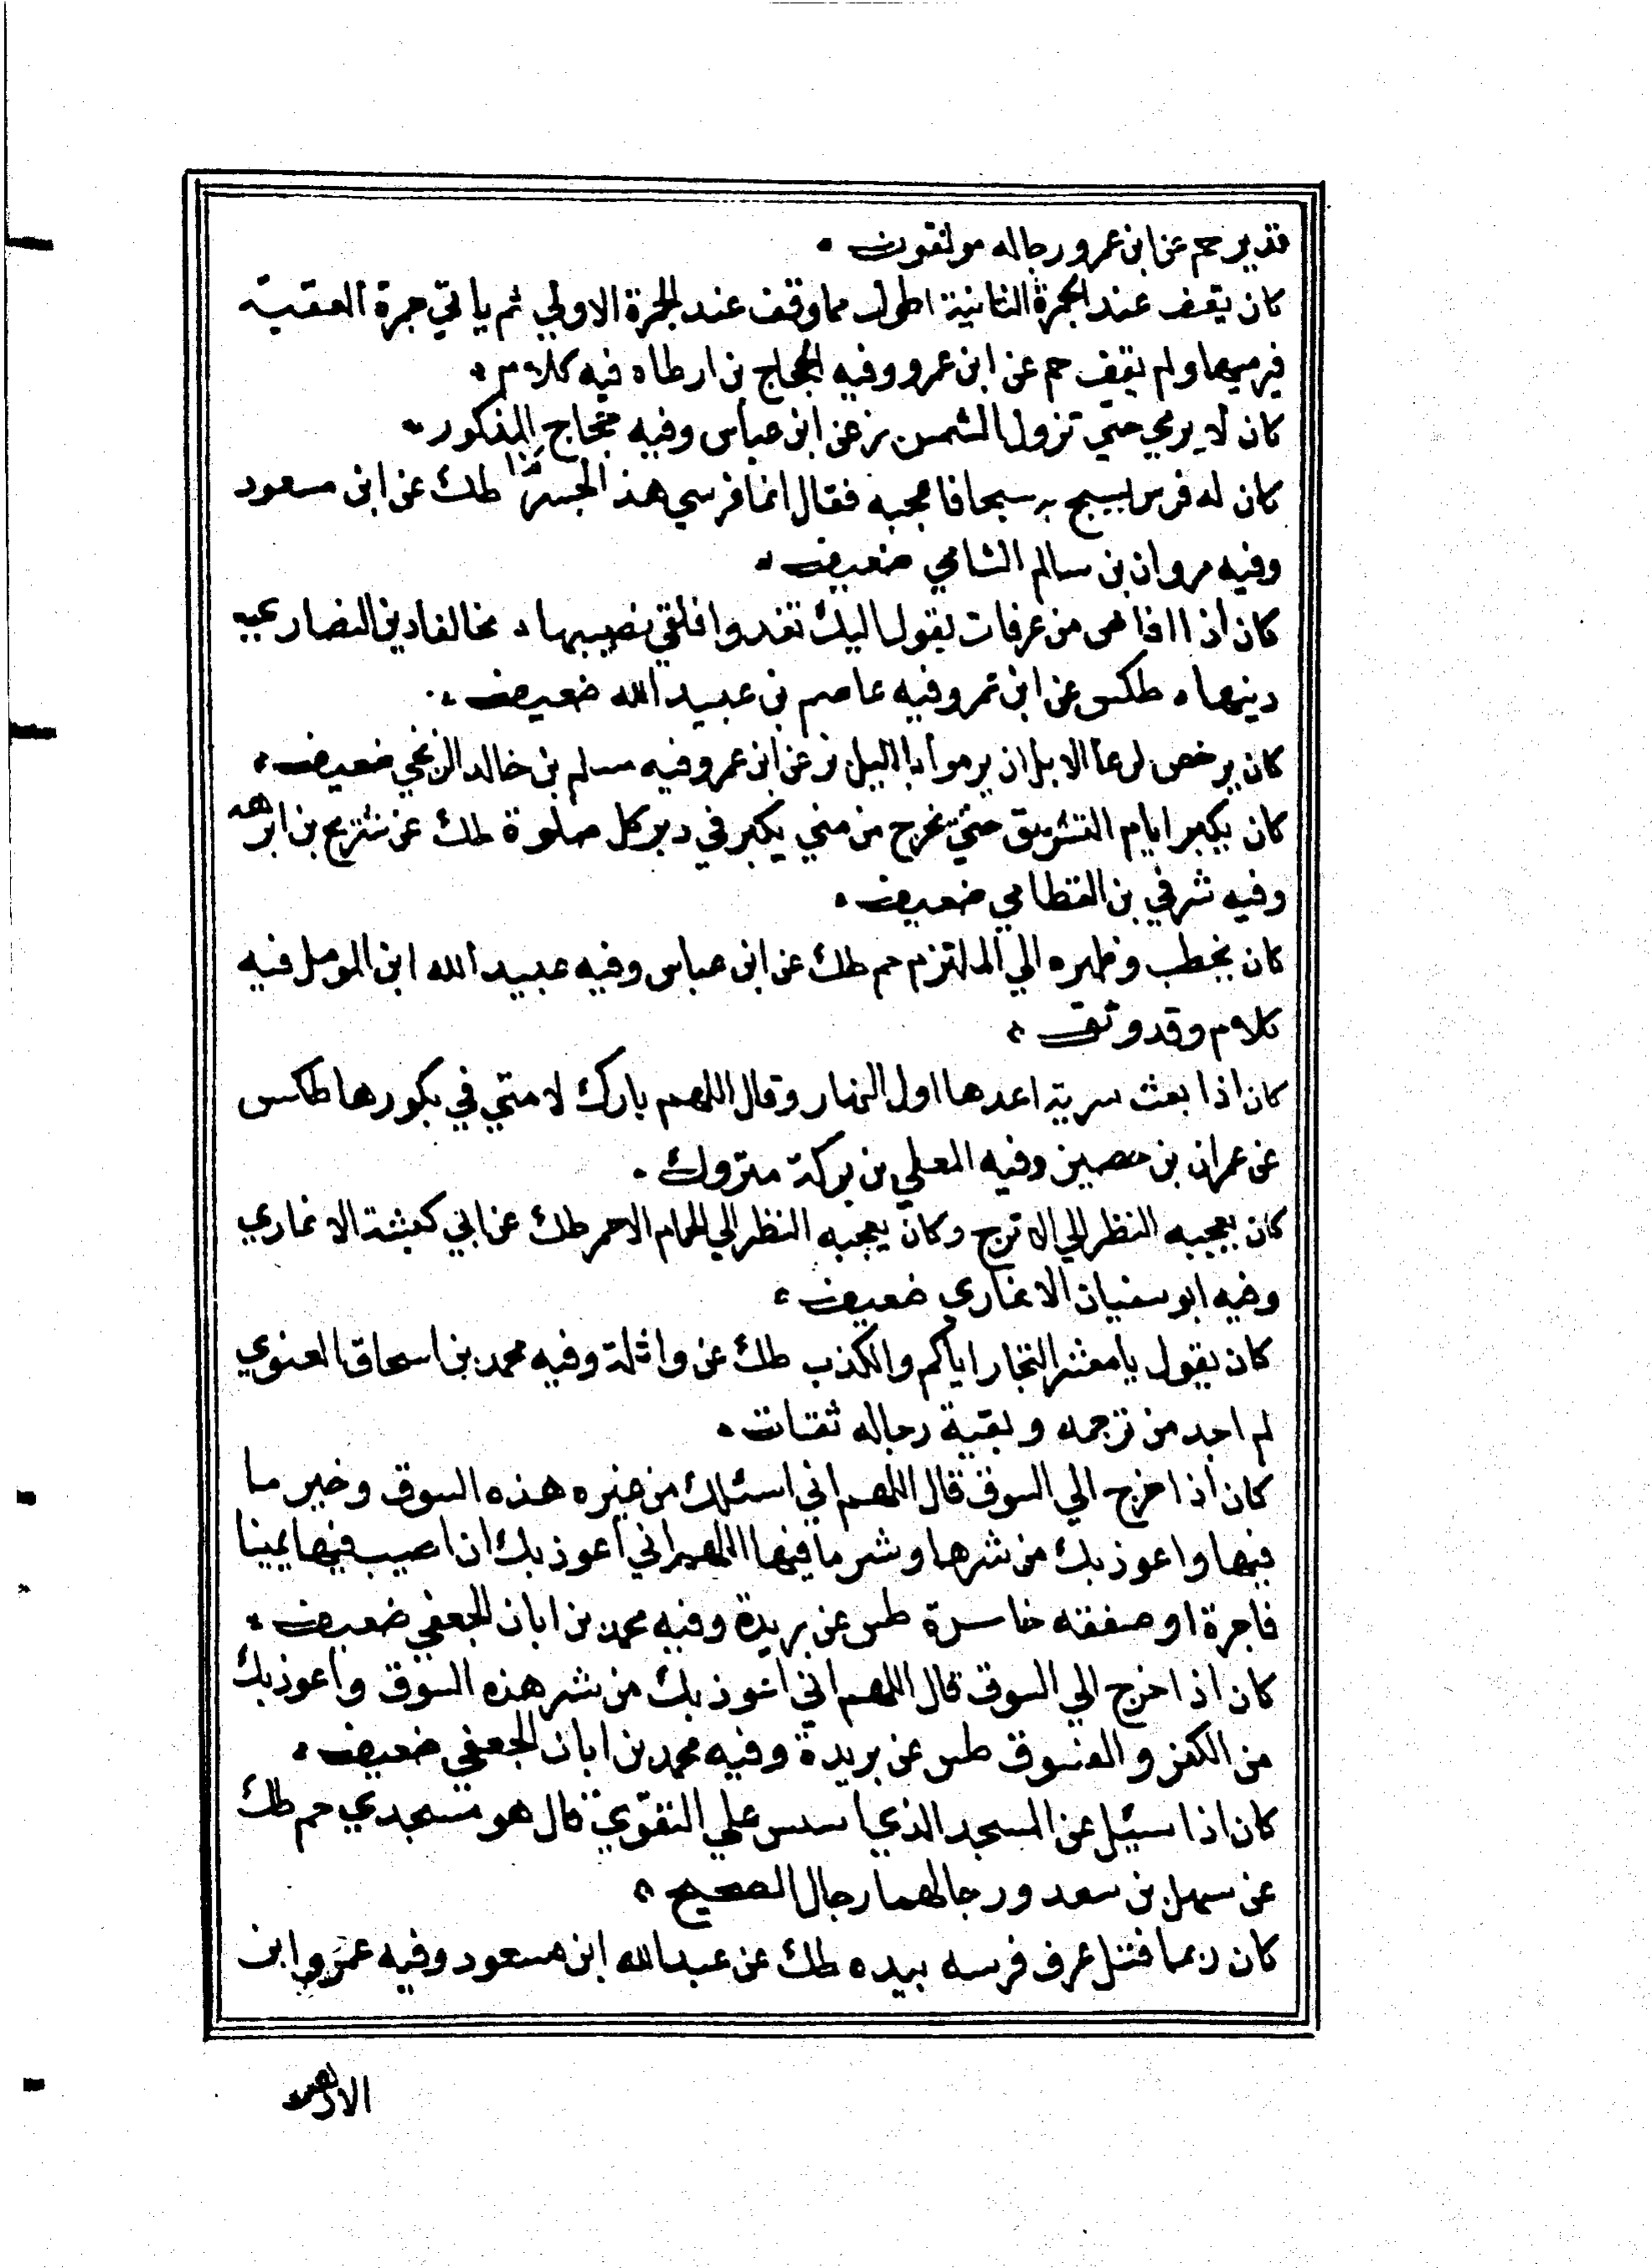 قدير حم عن ابن عمرو رجاله موثقون
كان يقف عند الجمرة الثانية اطول مما وقف عند الجمرة الاولي ثم ياتي جمرة العقبة
فيرميها ولم يقف حم عن ابن عمرو وفيه الحجاج بن ارطاه فيه كلام
كان لا يرمي حتي تزول الشمس ز عن ابن عباس وفيه حجاج المذكور
كان له فرس يسبح به سبحا فاعجبه فقال انما فرسي هذا بحر طك عن ابن مسعود
وفيه مروان بن سالم الشامي ضعيف
كان اذا افاض من عرفات يقول اليك تغدوا قلقي نصيبها مخالفا دين النصاري
دينها طكس عن ابن عمر وفيه عاصم بن عبيد الله ضعيف
كان يرخص لرعا الابل ان يرموا بالليل ز عن ابن عمر وفيه مسلم بن خالد الزنجي ضعيف
كان يكبر ايام التشريق حتي يخرج من مني يكبر في دبر كل صلوة طك عن شريح بن ابرهه
وفيه شرقي بن القطامي ضعيف
كان يخطب وظهره الي الملتزم حم طك عن ابن عباس وفيه عبيد الله ابن المومل فيه
كلام وقد وثق
كان اذا بعث سرية اعدها اول النهار وقال اللهم بارك لامتي في بكورها طكس
عن عمران بن حصين وفيه المعلي بن بركة متروك
كان يعجبه النظر الي الاترج وكان يعجبه النظر الي الحمام الاحمر طك عن ابي كبشة الانماري
وفيه ابو سفيان الانماري ضعيف
كان يقول يا معشر التجار اياكم والكذب طك عن واثلة وفيه محمد بن اسحاق الغنوي
لم اجد من ترجمه وبقية رجاله ثقات
كان اذا خرج الي السوق قال اللهم اني اسئلك من خيره هذه السوق وخير ما
فيها واعوذ بك من شرها وشر ما فيها اللهم اني اعوذ بك ان اصيب فيها يمينا
فاجرة او صفقه خاسرة طس عن بريدة وفيه محمد بن ابان الجعفي ضعيف
كان اذا اخرج الي السوق قال اللهم اني اعوذ بك من شر هذه السوق واعوذ بك
من الكفر والفسوق طس عن بريدة وفيه محمد بن ابان الجعفي ضعيف
كان اذا سئيل عن المسجد الذي اسس علي التقوي قال هو مسجدي حم طك
عن سهل بن سعد ورجالهما رجال الصحيح
كان ربما فتل عرف فرسه بيده طك عن عبد الله ابن مسعود وفيه عمرو ابن
الازهر